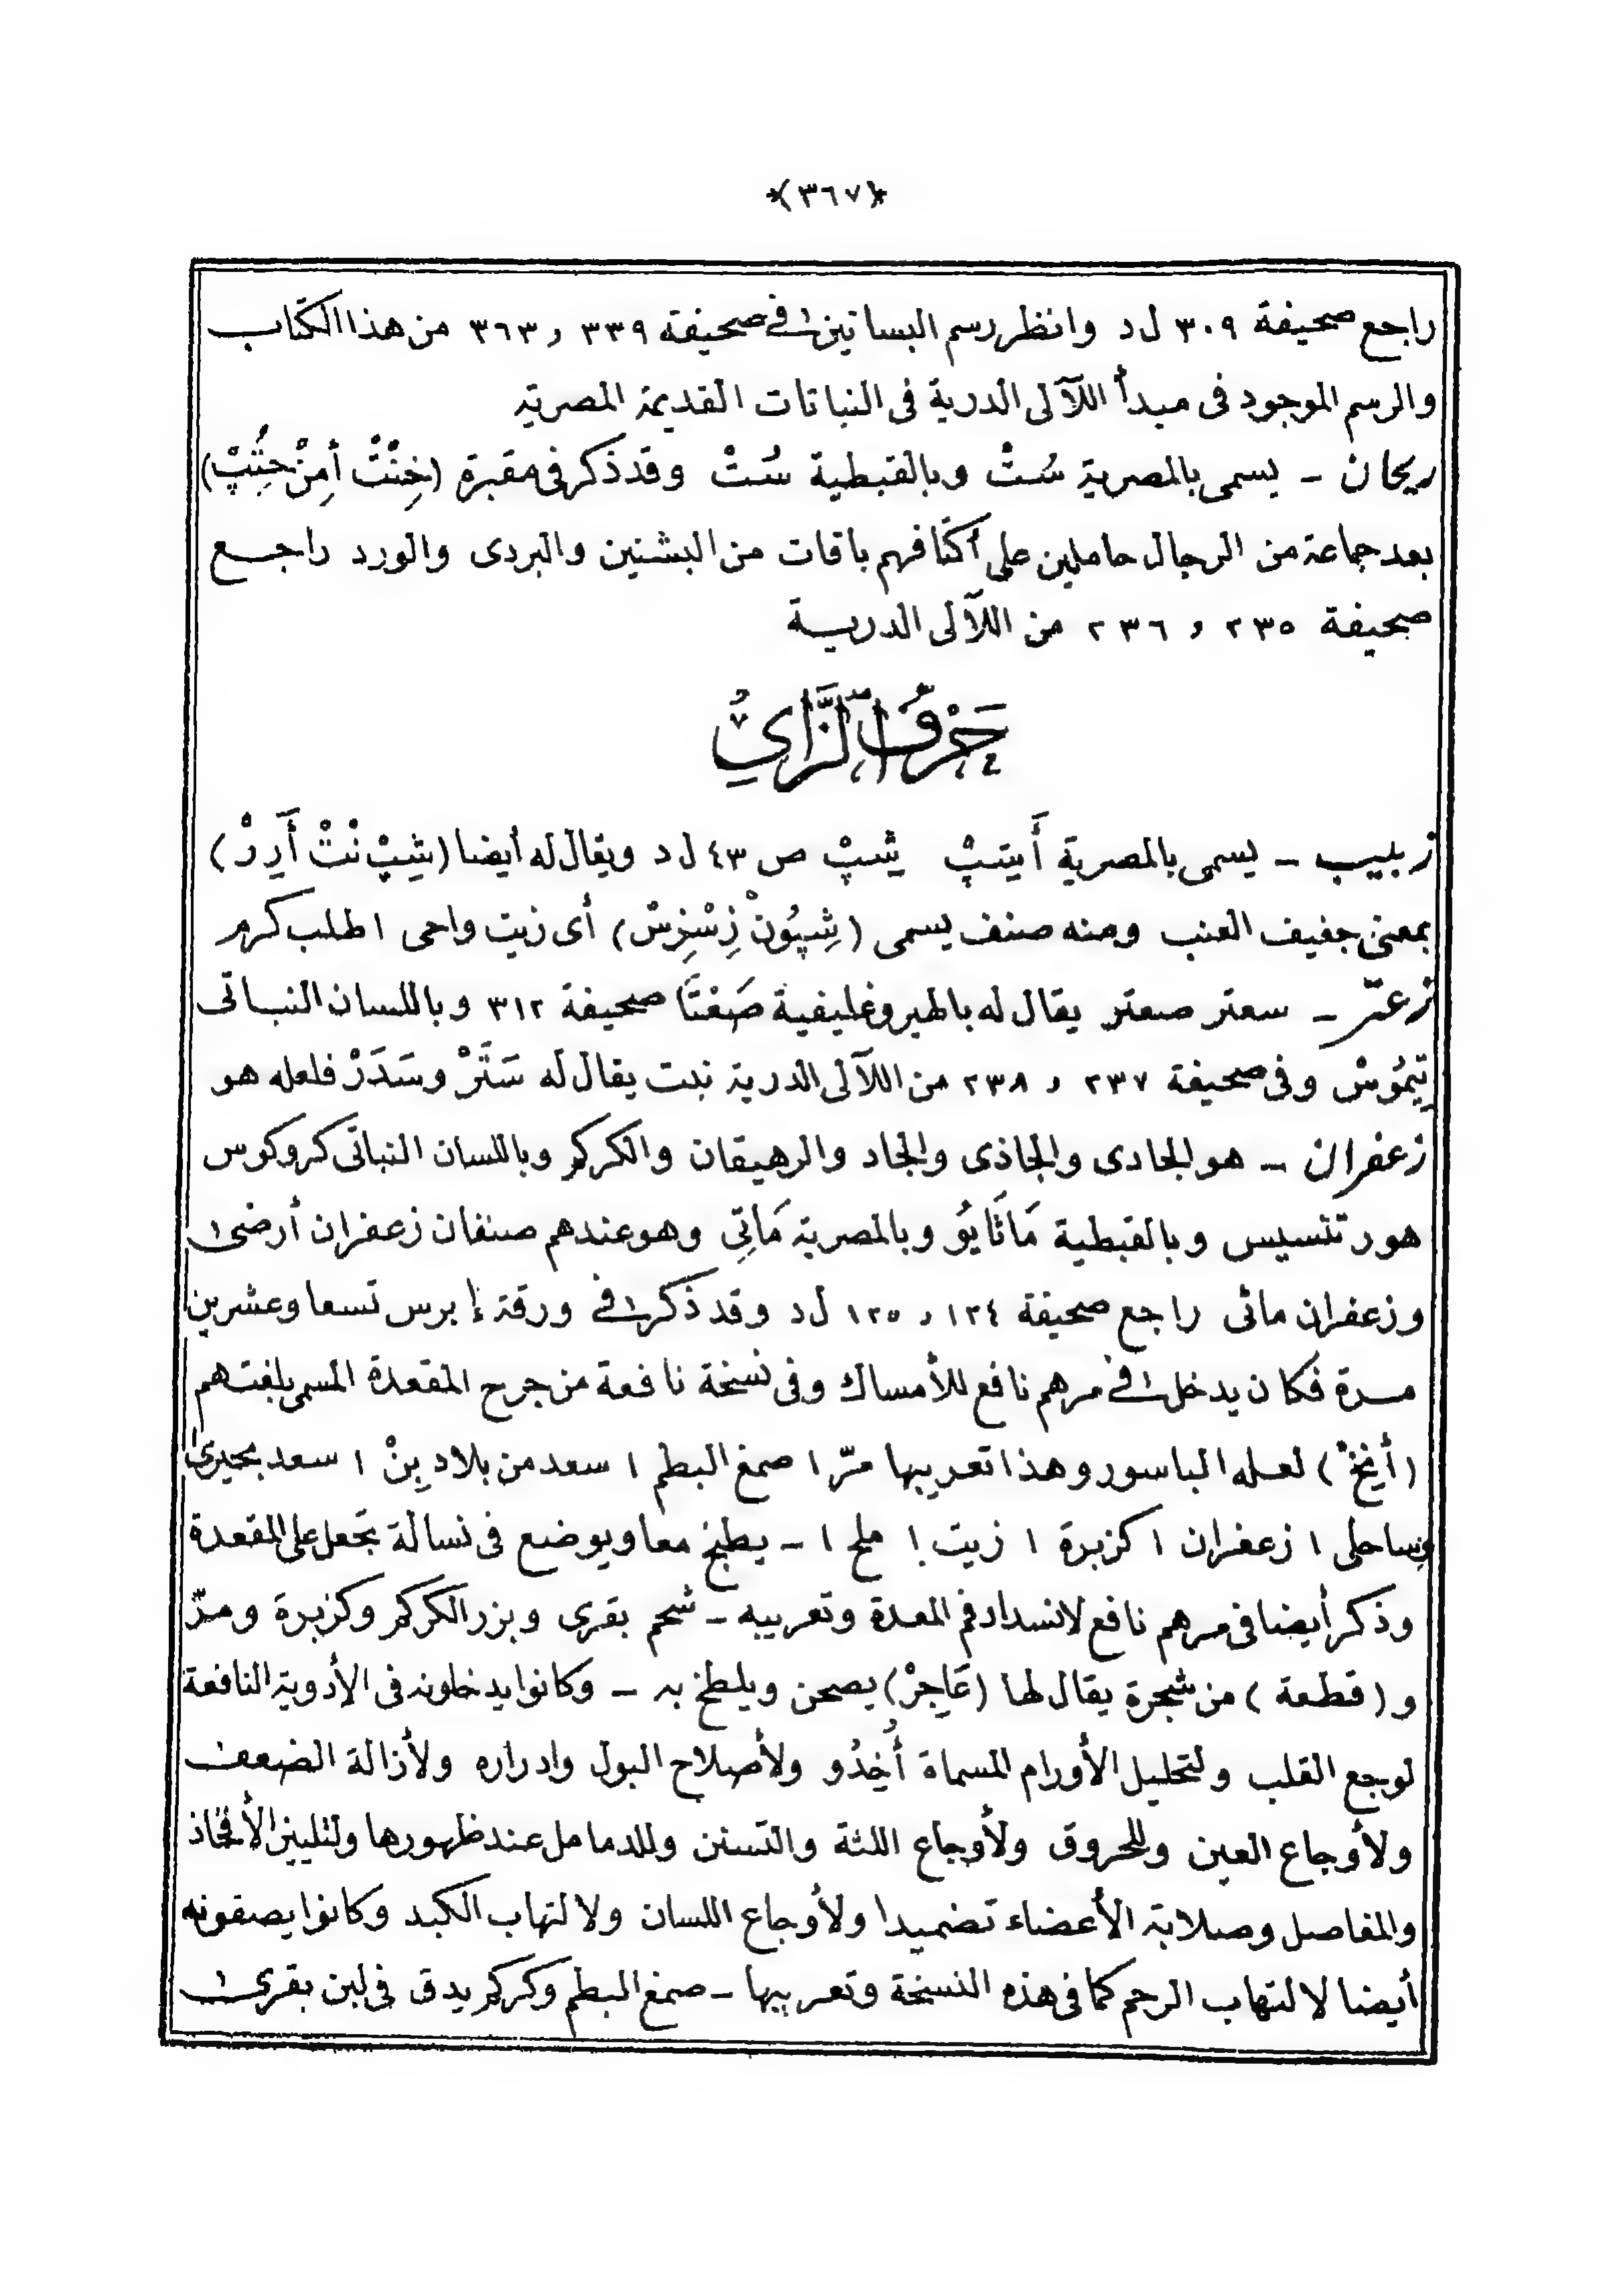 ﴿٣٦٧﴾
راجع صحيفة ٣٠٩ ل د وانظر رسم البساتين فى صحيفة ٣٣٩ و ٣٦٣ من هذا الكتاب
والرسم الموجود فى مبدأ اللآلى الدرية فى النباتات القديمة المصرية
ريحان - يسمى بالمصرية سُتْ وبالقبطية سُتْ وقد ذكر فى مقبرة (خِنْتْ أمِنْ حِتُبْ)
بعد جماعة من الرجال حاملين على أكتافهم باقات من البشنين والبردى والورد راجع
صحيفة ٢٣٥ و ٢٣٦ من اللآلى الدرية
حَرْفُ الزَّايِ
زبيب - يسمى بالمصرية أَيتبْ يشبْ ص ٤٣ ل د ويقال له أيضا (شِپْ نْتْ أَرِرْ)
بمعنى جفيف العنب ومنه صنف يسمى (شِپُونْ زِسْزِسْ) أى زبيت واحى اطلب كرم
زعتر - سعتر صعتر يقال له بالهيروغليفية صَعْتَا صحيفة ٣١٢ وباللسان النباتى
تِيمُوسْ وفى صحيفة ٢٣٧ و ٢٣٨ من اللآلى الدرية نبت يقال له سَتَرْ وسَدَرْ فلعله هو
زعفران - هو الجادى والجاذى والجاد والرهيقان والكركم وباللسان النباتى كروكوس
هورتنسيس وبالقبطية مَاتَايُو وبالمصرية مَاتِى وهو عندهم صنفان زعفران أرضى
وزعفران مائى راجع صحيفة ١٢٤ و ١٢٥ ل د وقد ذكر فى ورقة إبرس تسعا وعشرين
مرة فكان يدخل فى مرهم نافع للأمساك وفى نسخة نافعة من جرح المقعدة المسمى بلغتهم
(أنِخْ) لعله الباسور وهذا تعريبها مرّ ١ صمغ البطم ١ سعد من بلاد بِنْ ١ سعد بحيرى
وساحلى ١ زعفران ١ كزبرة ١ زيت ١ ملح ١ - يطبخ معا ويوضع فى نسالة تجعل على المقعدة
وذكر أيضا فى مرهم نافع لانسداد فم المعدة وتعريبه - شحم بقرى وبزر الكركم وكزبرة ومرّ
و (قطعة) من شجرة يقال لها (عَاجِرْ) يصحن ويلطخ به - وكانوا يدخلونه فى الأدوية النافعة
لوجع القلب ولتحليل الأورام المسماة أُخِدُو ولأصلاح البول وادراره ولأزالة الضعف
ولأوجاع العين وللحروق ولأوجاع اللثة والتسنن وللدمامل عند ظهورها ولتليين الأفخاذ
والمفاصل وصلابة الأعضاء تضميدا ولأوجاع اللسان ولالتهاب الكبد وكانوا يصفونه
أيضا لالتهاب الرحم كما فى هذه النسخة وتعريبها - صمغ البطم وكركم يدق فى لبن بقرى